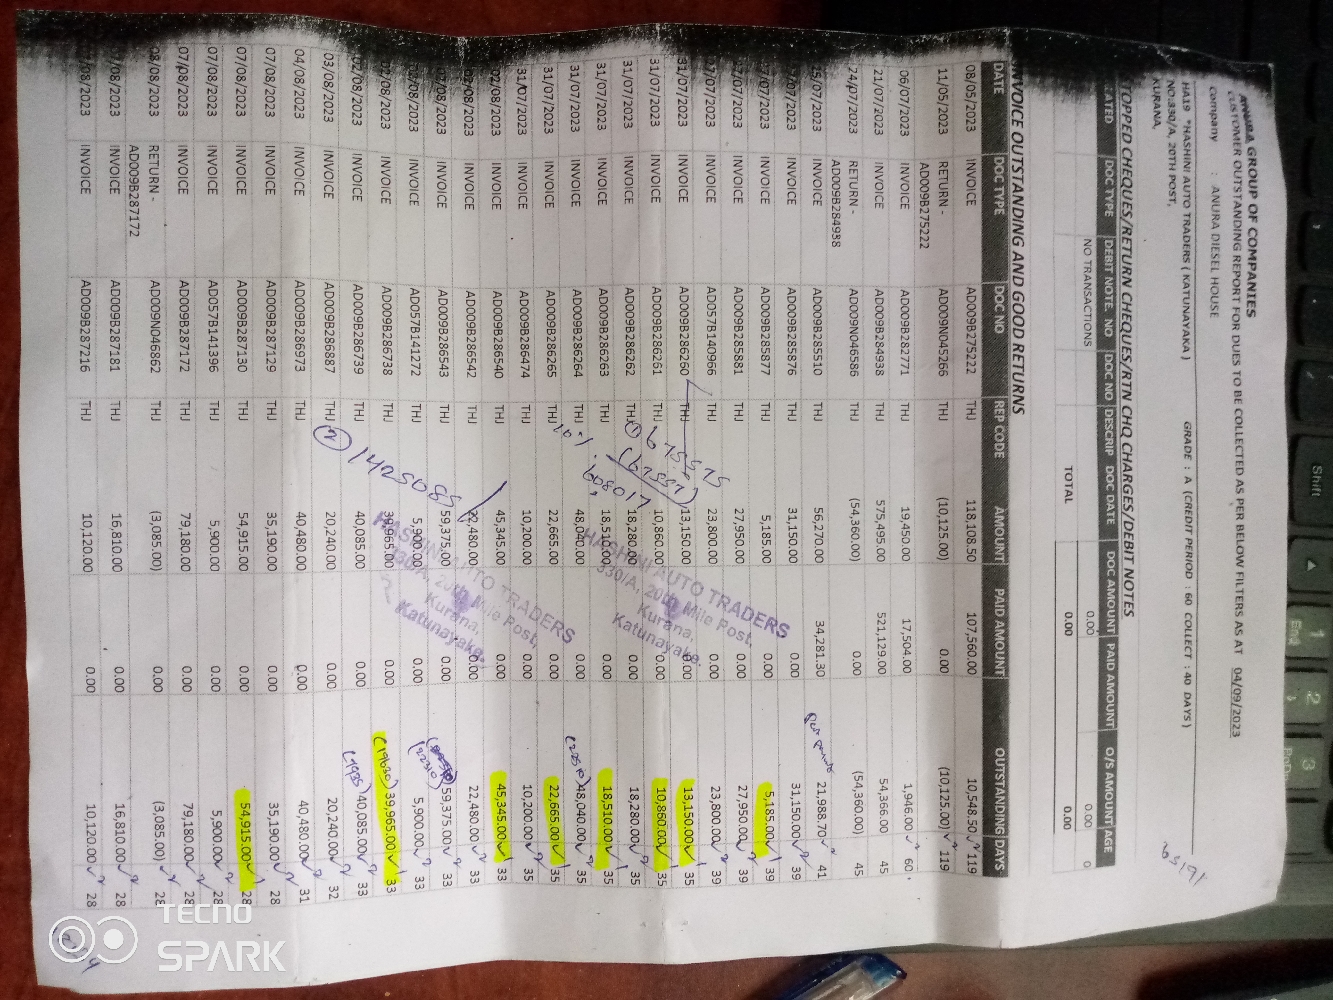 ANURA GROUP OF COMPANIES
CUSTOMER OUTSTANDING REPORT FOR DUES TO BE COLLECTED AS PER BELOW FILTERS AS AT 04/09/2023
Company : ANURA DIESEL HOUSE
HA19 *HASHINI AUTO TRADERS ( KATUNAYAKA ) GRADE : A (CREDIT PERIOD : 60 COLLECT : 40 DAYS)
NO:330/A, 20TH POST,
KURANA,
TOPPED CHEQUES/RETURN CHEQUES/RTN CHQ CHARGES/DEBIT NOTES
DOC TYPE DEBIT NOTE. NO DOC NO DESCRIP DOC DATE DOC AMOUNT PAID AMOUNT O/S AMOUNT AGE
NO TRANSACTIONS 0.00 0.00 0
TOTAL 0.00 0.00
INVOICE OUTSTANDING AND GOOD RETURNS
DATE DOC TYPE DOC NO REP CODE AMOUNT PAID AMOUNT OUTSTANDING DAYS
08/05/2023 INVOICE AD009B275222 THJ 118,108.50 107,560.00 10,548.50 119
11/05/2023 RETURN - AD009N045266 THJ (10,125.00) 0.00 (10,125.00) 119
AD009B275222
06/07/2023 INVOICE AD009B282771 THJ 19,450.00 17,504.00 1,946.00 60
21/07/2023 INVOICE AD009B284938 THJ 575,495.00 521,129.00 54,366.00 45
24/07/2023 RETURN - AD009N046586 THJ (54,360.00) 0.00 (54,360.00) 45
AD009B284938
25/07/2023 INVOICE AD009B285510 THJ 56,270.00 34,281.30 21,988.70 41
27/07/2023 INVOICE AD009B285876 THJ 31,150.00 0.00 31,150.00 39
27/07/2023 INVOICE AD009B285877 THJ 5,185.00 0.00 5,185.00 39
27/07/2023 INVOICE AD009B285881 THJ 27,950.00 0.00 27,950.00 39
27/07/2023 INVOICE AD057B140966 THJ 23,800.00 0.00 23,800.00 39
31/07/2023 INVOICE AD009B286260 THJ 13,150.00 0.00 13,150.00 35
31/07/2023 INVOICE AD009B286261 THJ 10,860.00 0.00 10,860.00 35
31/07/2023 INVOICE AD009B286262 THJ 18,280.00 0.00 18,280.00 35
31/07/2023 INVOICE AD009B286263 THJ 18,510.00 0.00 18,510.00 35
31/07/2023 INVOICE AD009B286264 THJ 48,040.00 0.00 48,040.00 35
31/07/2023 INVOICE AD009B286265 THJ 22,665.00 0.00 22,665.00 35
31/07/2023 INVOICE AD009B286474 THJ 10,200.00 0.00 10,200.00 35
02/08/2023 INVOICE AD009B286540 THJ 45,345.00 0.00 45,345.00 33
02/08/2023 INVOICE AD009B286542 THJ 22,480.00 0.00 22,480.00 33
02/08/2023 INVOICE AD009B286543 THJ 59,375.00 0.00 59,375.00 33
02/08/2023 INVOICE AD057B141272 THJ 5,900.00 0.00 5,900.00 33
02/08/2023 INVOICE AD009B286738 THJ 39,965.00 0.00 (19630) 39,965.00 33
02/08/2023 INVOICE AD009B286739 THJ 40,085.00 0.00 40,085.00 33
03/08/2023 INVOICE AD009B286887 THJ 20,240.00 0.00 20,240.00 32
04/08/2023 INVOICE AD009B286973 THJ 40,480.00 0.00 40,480.00 31
07/08/2023 INVOICE AD009B287129 THJ 35,190.00 0.00 35,190.00 28
07/08/2023 INVOICE AD009B287130 THJ 54,915.00 0.00 54,915.00 28
07/08/2023 INVOICE AD057B141396 THJ 5,900.00 0.00 5,900.00 28
07/08/2023 INVOICE AD009B287172 THJ 79,180.00 0.00 79,180.00 28
08/08/2023 RETURN - AD009N046862 THJ (3,085.00) 0.00 (3,085.00) 28
AD009B287172
07/08/2023 INVOICE AD009B287181 THJ 16,810.00 0.00 16,810.00 28
07/08/2023 INVOICE AD009B287216 THJ 10,120.00 0.00 10,120.00 28
① 675575
(67557)
10% 608017
② 1425085
HASHINI AUTO TRADERS
330/A, 20th Mile Post,
Kurana,
Katunayake.
HASHINI AUTO TRADERS
330/A, 20th Mile Post,
Kurana,
Katunayake.
Shift
TECNO
SPARK